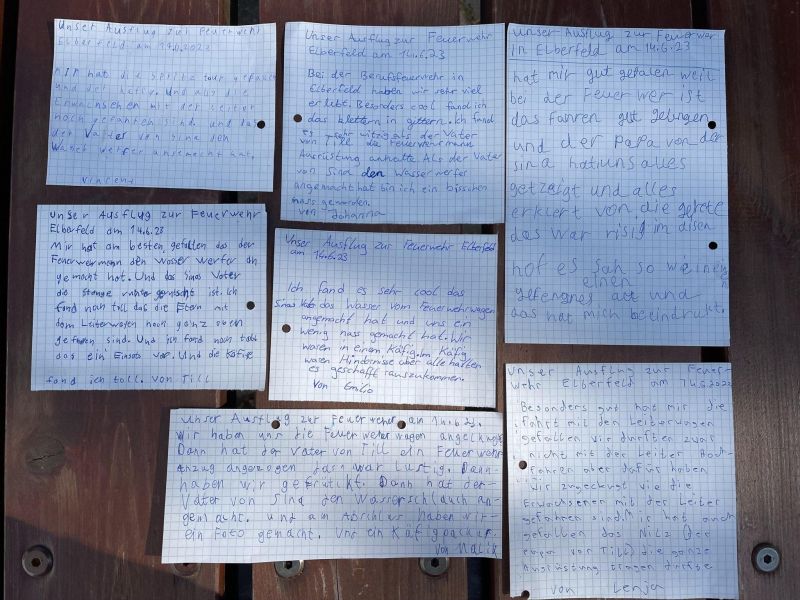 Unser Ausflug zur Feuerwehr
Elberfeld am
mir hat die
und der
Erwachsenen mit der Leiter
hoch gefahren sind. und das
der Vater von Sina den
Wasser werfer angemacht hat.
Vincent
Unser Ausflug zur Feuerwehr
Elberfeld am 14.6.23
Bei der Berufsfeuerwehr in
Elberfeld haben wir sehr viel
erlebt. Besonders cool fand ich
das klettern in gittern. Ich fand
es sehr witzig als der Vater
von Till die Feuerwehrmann
Ausrüstung anhatte Als der Vater
von Sina den Wasserwerfer
angemacht hat bin ich ein bisschen
nass geworden.
von Johanna
Unser Ausflug zur Feuerwer
in Elberfeld am 14.6.23
hat mir gut gefalen weil
bei der Feuer wer ist
das fahren gut gelungen
und der Papa von der
sina hat uns alles
getzeigt und alles
erklert von die gerete
das war risig im disen
hof es sah so wie in ein
einen
gefengnes aus und
das hat mich beeindrukt.
unser Ausflug zur Feuerwehr
Elberfeld am 14.6.23
Mir hat am besten gefallen das der
Feuerwermann den Wasser werfer an
gemacht hat. Und das Sinas Vater
die Stange runter gerutscht ist. Ich
fand noch toll das die Eltern mit
dem Leiterwagen hoch ganz oben
gefaren sind. Und ich fand noch toll
das ein Einsatz war. Und die Käfige
fand ich toll. von Till
Unser Ausflug zur Feuerwehr Elberfeld
am 14.6.23
Ich fand es sehr cool das
Sinas Vater das Wasser vom Feuerwehrwagen
angemacht hat und uns ein
wenig nass gemacht hat. Wir
waren in einem Käfig. Im Käfig
waren Hindernisse über alle hatten
es geschafft rauszukommen.
Von Emilio
Unser Ausflug zur Feuerwehr am 14.6.23.
Wir haben uns die Feuerwehrwagen angeckugt
Dann hat der Vater von Till ein Feuerwehr
Anzug angezogen dass war lustig. Dann
haben wir gefrütikt. Dann hat der
Vater von Sina den Wasserschlauch an-
gemacht. und am Abschlus haben wir
ein Foto gemacht. Und ein
von Malik
Unser Ausflug zur Feuer-
wehr Elberfeld am 14.6.2023
Besonders gut hat mir die
fahrt mit den Leiterwagen
gefallen wir durften zwar
nicht mit der Leiter hoch-
fahren aber dafür haben
wir zugekugt wie die
Erwachsenen mit der Leiter
gefahren sind. Mir hat auch
gefallen das Nilz (der
von Till) die ganze
Ausrüstung tragen durfte
von Lenja